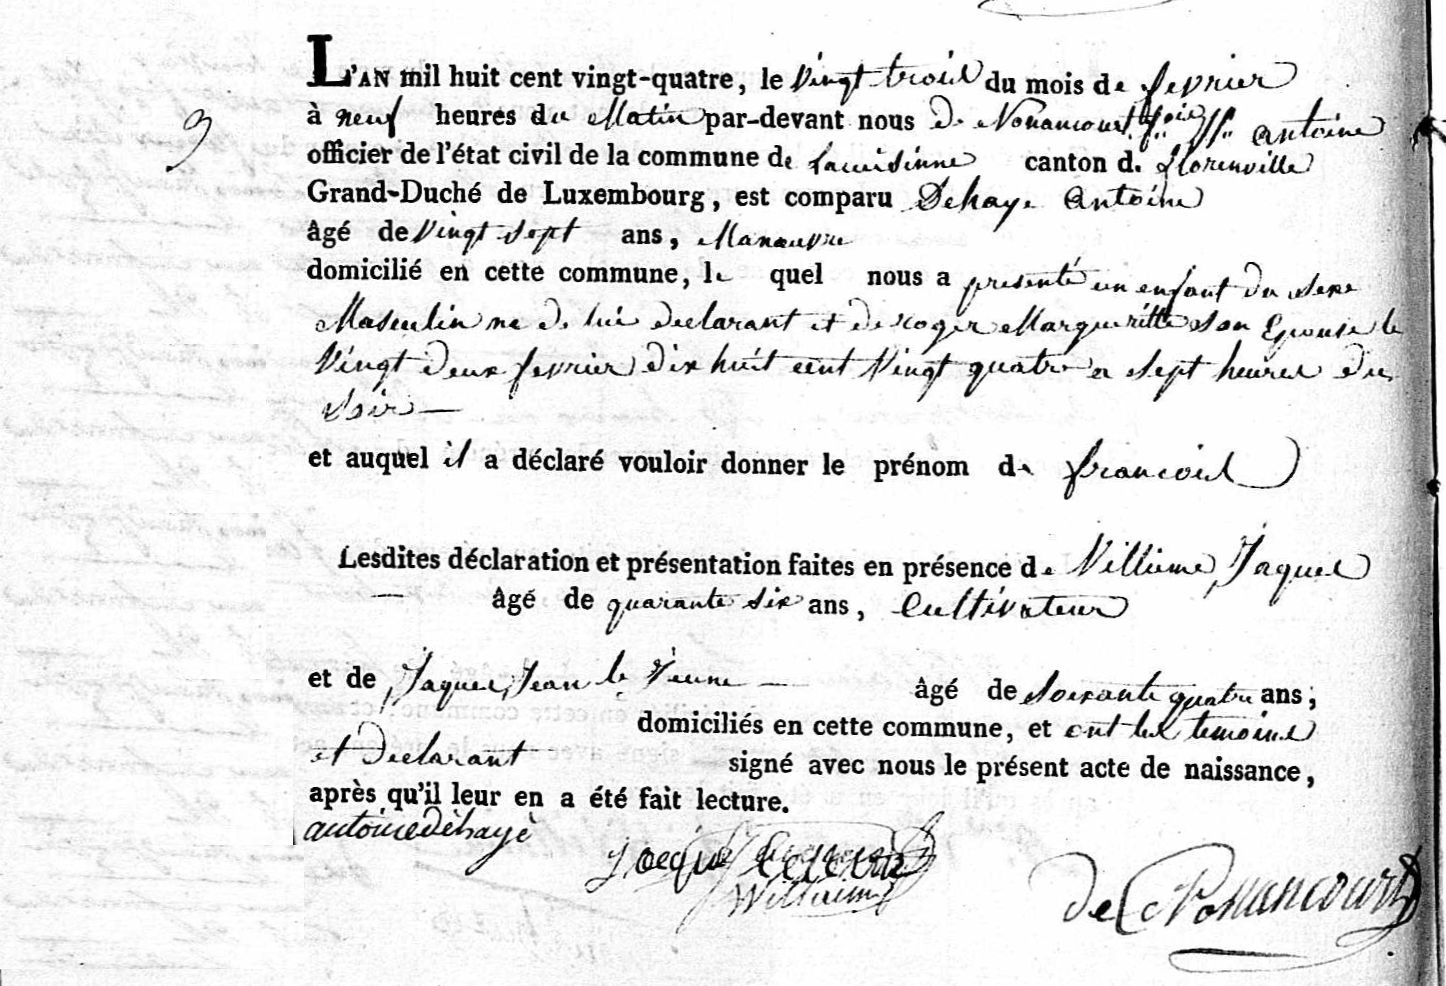 L'AN mil huit cent vingt-quatre, le vingt trois du mois de fevrier
à neuf heures du Matin par-devant nous De Nonancourt antoine
9
officier de l'état civil de la commune de Lacuisinne canton d. florenville
Grand-Duché de Luxembourg, est comparu Dehaye antoine
âgé de vingt sept ans, Manœuvre
domicilié en cette commune, le quel nous a presenté un enfant du sexe
Masculin né de lui declarant et de roger Margueritte son Epouse le
vingt deux fevrier dix huit cent vingt quatre a sept heures du
soir —
et auquel il a déclaré vouloir donner le prénom de francois
Lesdites déclaration et présentation faites en présence de Villieme Jaques
— âgé de quarante six ans, Cultivateur
et de Jaques Jean le Jeune — âgé de soixante quatre ans;
domiciliés en cette commune, et ont les temoins
et declarant signé avec nous le présent acte de naissance,
après qu'il leur en a été fait lecture.
antoine dehaye
Jacque
Willieme
de Nonancourt